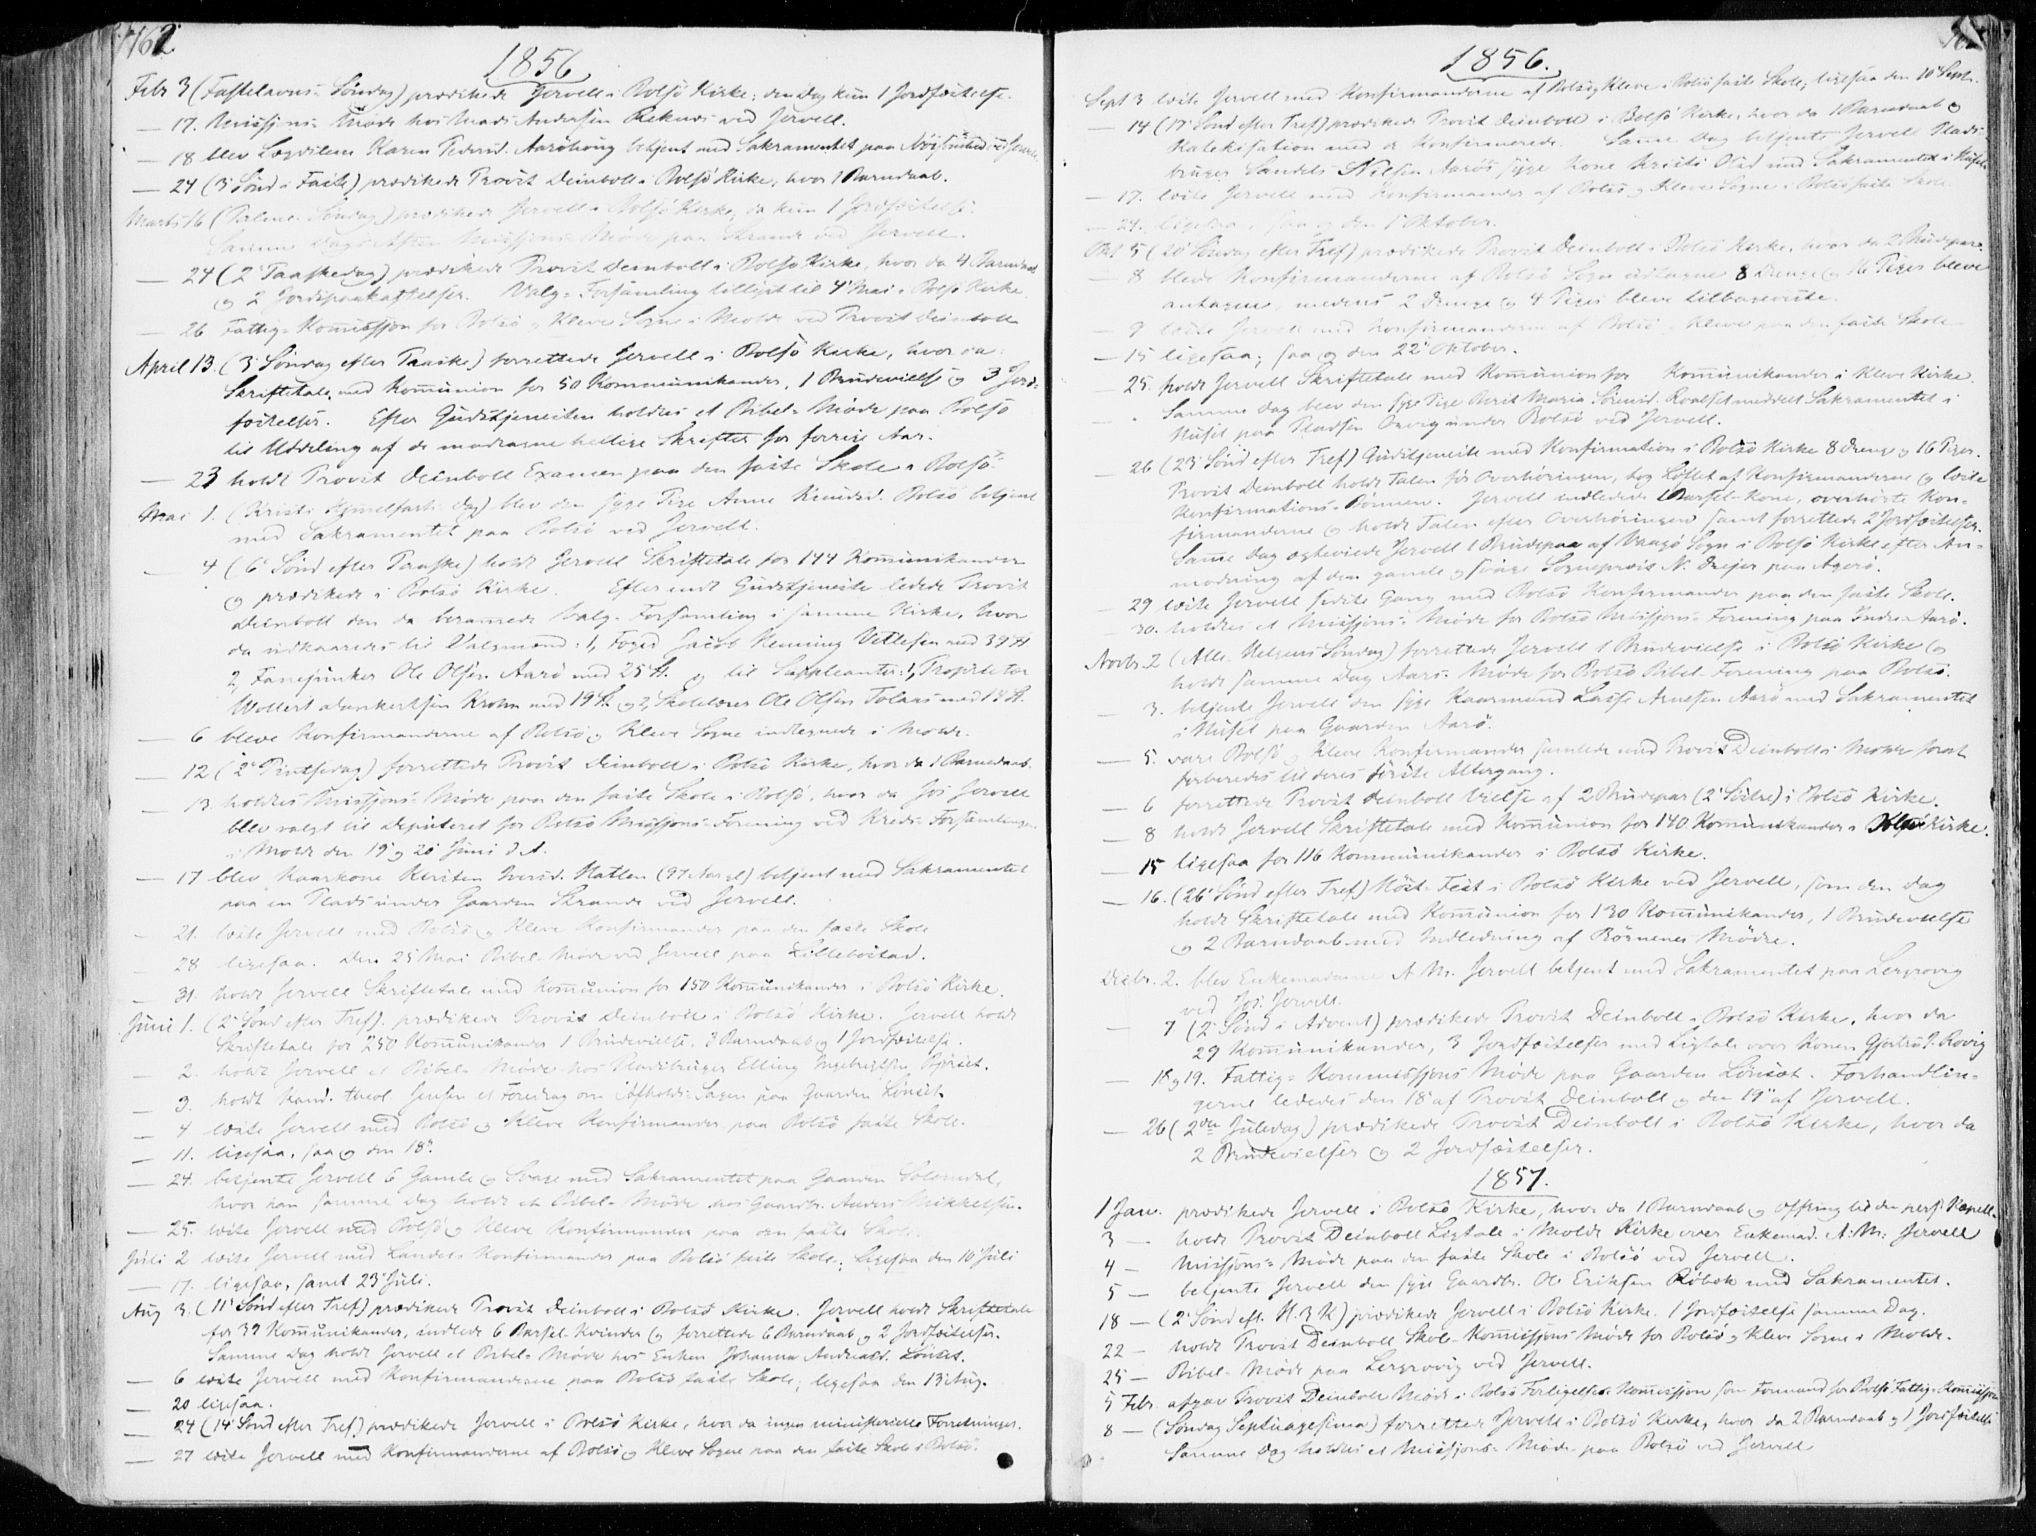 162
1856
Febr 3 (Fastelavns-Søndag) prædikede Jervell i Bolsø Kirke; den Dag kun 1 Jordfæstelse.
— 17. Missjons-Møde hos Mads Andersen Reknes ved Jervell.
— 18 blev Karen Pedersd. Aarøhoug betjent med Sakramentet paa
— 24 (3 Sønd i Faste) prædikede Provst Deinboll i Bolsø Kirke, hvor 1 Barndaab.
Marts 16 (Palme-Søndag) prædikede Jervell i Bolsø Kirke, da kun 1 Jordfæstelse.
Samme Dags Aften Missjons-Møde paa Strande ved Jervell.
— 24 (2 Paaskedag) prædikede Provst Deinboll i Bolsø Kirke, hvor da 4 Barndaab
og 2 Jordspaakastelser. Valg-Forsamling tillyst til 4 Mai i Bolsø Kirke.
— 26 Fattig-Kommissjon for Bolsø og Kleve Sogne i Molde ved Provst Deinboll
April 13. (3 Søndag efter Paaske) forrettede Jervell i Bolsø Kirke, hvor da:
Skriftetale med Kommunion for 50 Kommunikander, 1 Brudevielse og 3 Jord-
fæstelser. Efter Gudstjenesten holdtes et Bibel-Møde paa Bolsø
til Uddeling af de modtagne hellige Skrifter for forrige Aar.
— 23 holdt Provst Deinboll Examen paa den faste Skole i Bolsø.
Mai 1. (Kristi Himmelfarts-Dag) blev den syge Pige Anne Knudsd. Bolsø betjent
med Sakramentet paa Bolsø ved Jervell.
— 4 (6 Sønd efter Paaske) holdt Jervell Skriftetale for 144 Kommunikander
og prædikede i Bolsø Kirke. Efter endt Gudstjeneste ledede Provst
Deinboll den da berammede Valg-Forsamling i samme Kirke, hvor
da udkaaredes til Valgmænd: 1, Foged Jacob Henning Vitlesen med 39 St
2, Fanejunker Ole Olsen Aarø med 25 St. og til Suppleanter: 1, Proprietær
Wollert Dankertsen Krohn med 19 St. og 2, Skolelærer Ole Olsen Tolaas med 15 St.
— 6 bleve Konfirmanderne af Bolsø og Kleve Sogne indtegnede i Molde.
— 12 (2 Pintsedag) forrettede Provst Deinboll i Bolsø Kirke, hvor da 1 Barnedaab.
— 13. holdtes Missjons-Møde paa den faste Skole i Bolsø, hvor da Jos Jervell
blev valgt til Deputeret for Bolsø Missjons-Forening ved Kreds-Forsamlingen
i Molde den 19 og 20 Juni d. A.
— 17 blev Kaarkone Kirsten Iversd. Hatlen (97 Aar gl) betjent med Sakramentet
paa en Plads under Gaarden Strande ved Jervell.
— 21. læste Jervell med Bolsø og Kleve Konfirmander paa den faste Skole
— 28 ligesaa. Den 25 Mai Bibel-Møde ved Jervell paa Lillebostad.
— 31. holdt Jervell Skriftetale med Kommunion for 150 Kommunikander i Bolsø Kirke.
Juni 1. (2 Sønd efter Tref). prædikede Provst Deinboll i Bolsø Kirke. Jervell holdt
Skriftetale for 250 Kommunikander 1 Brudevielse, 3 Barndaab og 1 Jordfæstelse.
— 2. holdt Jervell et Bibel-Møde hos Pladsbruger Elling Ingebrigtsen Bjørset.
— 3. holdt Kand. theol. Jensen et Foredrag om Afholds-Sagen paa Gaarden Lønset
— 4 læste Jervell med Bolsø og Kleve Konfirmander paa Bolsø faste Skole.
— 11. ligesaa, saa og den 18.
— 24. betjente Jervell 6 Gamle og Svage med Sakramentet paa Gaarden
hvor han samme Dag holdt et Bibel-Møde hos Gaardbr. Anders Mikkelsen.
— 25. læste Jervell med Bolsø og Kleve Konfirmander paa den faste Skole.
Juli 2 læste Jervell med Landets Konfirmander paa Bolsø faste Skole; Ligesaa den 10 Juli
— 17. ligesaa, samt 23 Juli.
Aug 3. (11 Sønd efter Tref) prædikede Provst Deinboll i Bolsø Kirke. Jervell holdt Skriftetale
for 39 Kommunikander, indlede 6 Barsel-Kvinder og forrettede 6 Barndaab og 2 Jordfæstelser.
Samme Dag holdt Jervell et Bibel-Møde hos Enken Johanna Andreasd. Lønset.
— 6 læste Jervell med Konfirmanderne paa Bolsø faste Skole; ligesaa den 13 Aug.
— 20 ligesaa.
— 24 (14 Sønd efter Tref) prædikede Jervell i Bolsø Kirke, hvor da ingen ministerielle Forretninger.
— 27 læste Jervell med Konfirmanderne af Bolsø og Kleve Sogne paa den faste Skole i Bolsø.
1856.
Sept 3 læste Jervell med Konfirmanderne af Bolsø og Kleve i Bolsø faste Skole; ligesaa den 10 Sept.
— 14 (17 Sønd efter Tref) prædikede Provst Deinboll i Bolsø Kirke, hvor da 1 Barndaab og
Katekisation med de Konfirmerede. Samme Dag betjente Jervell Plads-
bruger Nielsen Aarøs syge Kone med Sakramentet i Huset.
— 17. læste Jervell med Konfirmander af Bolsø og Kleve Sogne i Bolsø faste Skole.
— 24. ligesaa, saa og den 1 Oktober.
Okt 5 (20 Søndag efter Tref) prædikede Provst Deinboll i Bolsø Kirke, hvor da 2 Brudepar.
— 8 blev Konfirmanderne af Bolsø Sogn 8 Drenge og 16 Piger bleve
antagne, medens 2 Drenge og 4 Piger bleve tilbageviste.
— 9 læste Jervell med Konfirmanderne af Bolsø og Kleve paa den faste Skole
— 15 ligesaa; saa og den 22 Oktober.
— 25. holdt Jervell Skriftetale med Kommunion for Kommunikander i Kleve Kirke.
Samme Dag blev den syge Pige Berit Maria meddelt Sakramentet i
Huset paa Pladsen under Bolsø ved Jervell.
— 26 (23 Sønd efter Tref) Gudstjeneste med Konfirmation i Bolsø Kirke 8 Drenge og 16 Piger.
Provst Deinboll holdt Talen før Overhøringen, tog Løftet af Konfirmanderne og læste
Konfirmations-Bønnen. Jervell indledede 1 Barsel-Kone, overhørte Kon-
firmanderne og holdt Talen efter Overhøringen samt forrettede 2 Jordfæstelser.
Samme Dag ægteviede Jervell 1 Brudepar af Vaagø Sogn i Bolsø Kirke efter An-
modning af den gamle og svage Sognepræst N. Drejer paa Agerø.
— 29 læste Jervell sidste Gang med Bolsø Konfirmander paa den faste Skole.
— 30. holdtes et Missjons-Møde for Bolsø Missjons-Forening paa Indre-Aarø.
Novbr. 2 (Alle Helgens Søndag) forrettede Jervell 1 Brudevielse i Bolsø Kirke og
holdt samme Dag Aars-Møde for Bolsø Bibel-Forening paa Bolsø.
— 3. betjente Jervell den syge Kaarmand Lasse Arnesen Aarø med Sakramentet
i Huset paa Gaarden Aarø.
— 5. vare Bolsø og Kleve Konfirmander samlede med Provst Deinboll i Molde forat
forberedes til deres første Altergang.
— 6 forrettede Provst Deinboll Vielse af 2 Brudepar (2 Søstre) i Bolsø Kirke.
— 8 holdt Jervell Skriftetale med Kommunion for 140 Kommunikander i Bolsø Kirke.
— 15 ligesaa for 116 Kommunikander i Bolsø Kirke.
— 16. (26 Sønd efter Tref) Høst-Fest i Bolsø Kirke ved Jervell, som den Dag
holdt Skriftetale med Kommunion for 130 Kommunikander, 1 Brudevielse
og 2 Barndaab med Indledning af Børnenes Mødre.
Decbr. 2. blev Enkemadame A M. Jervell betjent med Sakramentet paa Lergrovig
ved Jos. Jervell.
— 7 (2 Sønd i Advent) prædikede Provst Deinboll i Bolsø Kirke, hvor da
29 Kommunikander, 3 Jordfæstelser med Ligtale over Konen Røvig
— 18 og 19. Fattig-Kommissjons Møde paa Gaarden Lønset. Forhandlin-
gerne lededes den 18 af Provst Deinboll og den 19 af Jervell.
— 26 (2den Juledag) prædikede Provst Deinboll i Bolsø Kirke, hvor da
2 Brudevielser og 2 Jordfæstelser.
1857.
1 Jan. prædikede Jervell i Bolsø Kirke, hvor da 1 Barndaab og Offring til den pers. Kapell.
3 — holdt Provst Deinboll Ligtale i Molde Kirke over Enkemad. A. M. Jervell
4 — Missjons-Møde paa den faste Skole i Bolsø ved Jervell.
5 — betjente Jervell den syge Gaardbr. Ole Eriksen Røbek med Sakramentet.
18 — (2 Sønd eft. H. 3 K) prædikede Jervell i Bolsø Kirke 1 Jordfæstelse samme Dag.
22 — holdt Provst Deinboll Skole-Kommissjons Møde for Bolsø og Kleve Sogne i Molde.
25 — Bibel-Møde paa Lergrovig ved Jervell.
5 Febr. afgav Provst Deinboll Møde i Bolsø Forligelses-Komissjon som Formand for Bolsø Fattig-Kommissjon
8 — (Søndag Septuagesima) forrettede Jervell i Bolsø Kirke, hvor da 2 Barndaab og 1 Jordfæstelse
Samme Dag holdtes et Missjons-Møde paa Bolsø ved Jervell